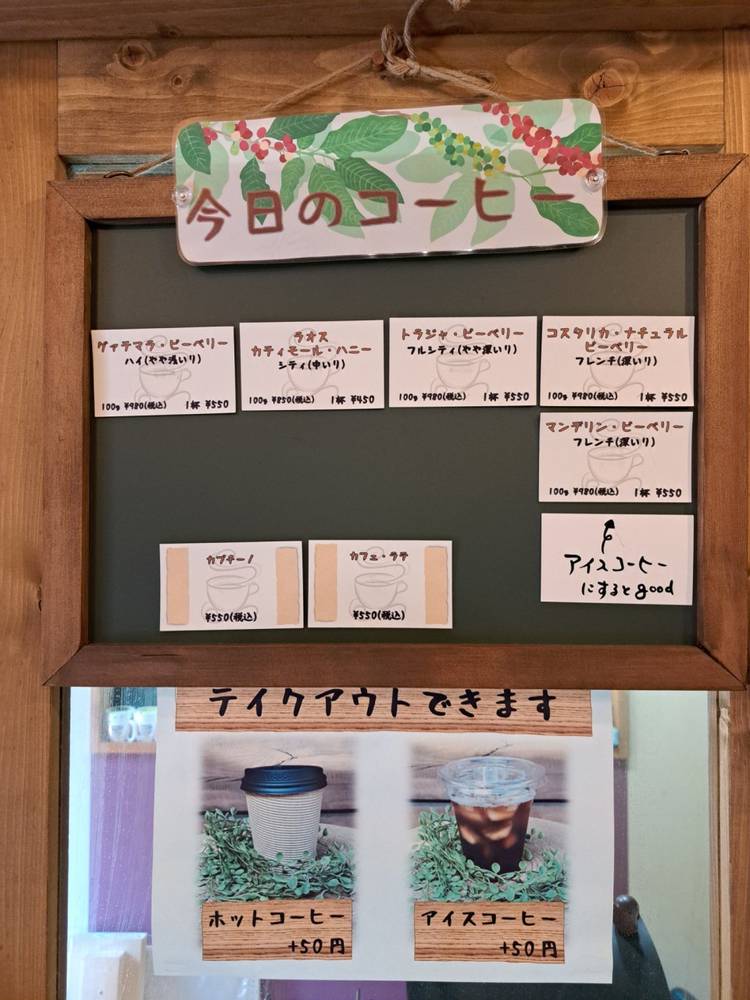 今日のコーヒー
グァテマラ・ピーベリー
ハイ(やや浅いり)
100g ¥980(税込) 1杯 ¥550
ラオス
カティモール・ハニー
シティ(中いり)
100g ¥850(税込) 1杯 ¥450
トラジャ・ピーベリー
フルシティ(やや深いり)
100g ¥980(税込) 1杯 ¥550
コスタリカ・ナチュラル
ピーベリー
フレンチ(深いり)
100g ¥980(税込) 1杯 ¥550
マンデリン・ピーベリー
フレンチ(深いり)
100g ¥980(税込) 1杯 ¥550
アイスコーヒー
にするとgood
カプチーノ
¥550(税込)
カフェ・ラテ
¥550(税込)
テイクアウトできます
ホットコーヒー
+50円
アイスコーヒー
+50円